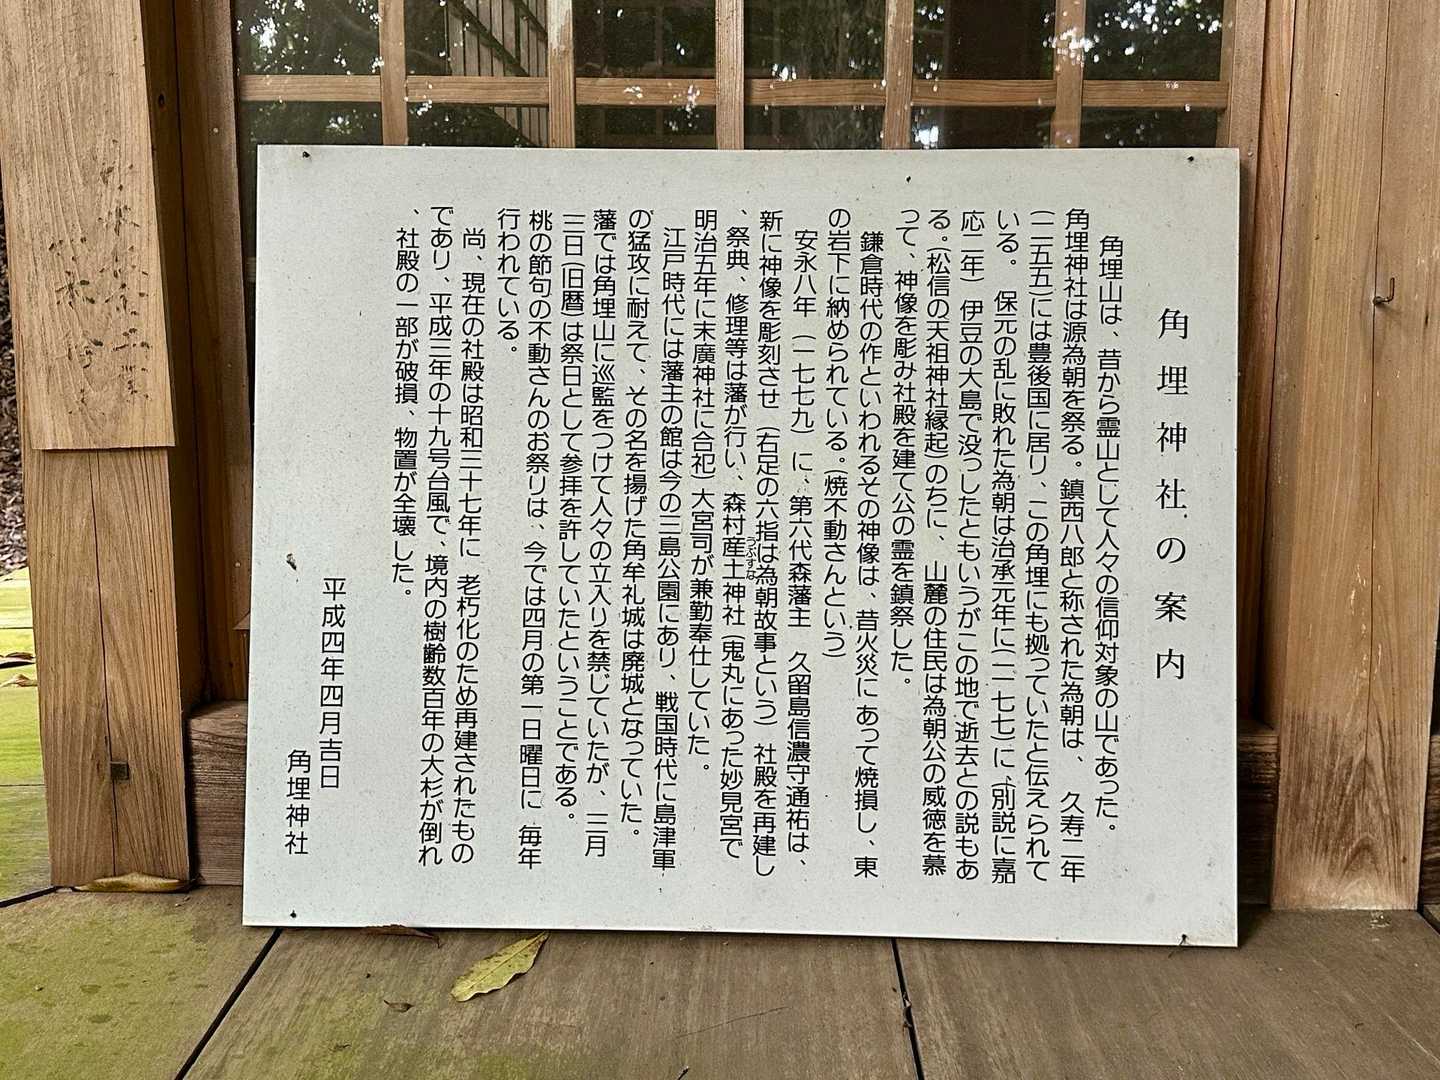 角埋神社の案内
角埋山は、昔から霊山として人々の信仰対象の山であった。
角埋神社は源為朝を祭る。鎮西八郎と称された為朝は、久寿二年
(一一五五)には豊後国に居り、この角埋にも拠っていたと伝えられて
いる。 保元の乱に敗れた為朝は治承元年に(一一七七)に(別説に嘉
応二年) 伊豆の大島で没っしたともいうがこの地で逝去との説もあ
る。(松信の天祖神社縁起)のちに、山麓の住民は為朝公の威徳を慕
って、神像を彫み社殿を建て公の霊を鎮祭した。
鎌倉時代の作といわれるその神像は、昔火災にあって焼損し、東
の岩下に納められている。(焼不動さんという)
安永八年 (一七七九) に、第六代森藩主 久留島信濃守通祐は、
新に神像を彫刻させ (右足の六指は為朝故事という) 社殿を再建し
、祭典、修理等は藩が行い、森村産土神社(鬼丸にあった妙見宮で
うぶすな
明治五年に末廣神社に合祀)大宮司が兼勤奉仕していた。
江戸時代には藩主の館は今の三島公園にあり、戦国時代に島津軍
の猛攻に耐えて、その名を揚げた角牟礼城は廃城となっていた。
藩では角埋山に巡監をつけて人々の立入りを禁じていたが、三月
三日(旧暦)は祭日として参拝を許していたということである。
桃の節句の不動さんのお祭りは、今では四月の第一日曜日に 毎年
行われている。
尚、現在の社殿は昭和三十七年に 老朽化のため再建されたもの
であり、平成三年の十九号台風で、境内の樹齢数百年の大杉が倒れ
、社殿の一部が破損、物置が全壊した。
平成四年四月吉日
角埋神社